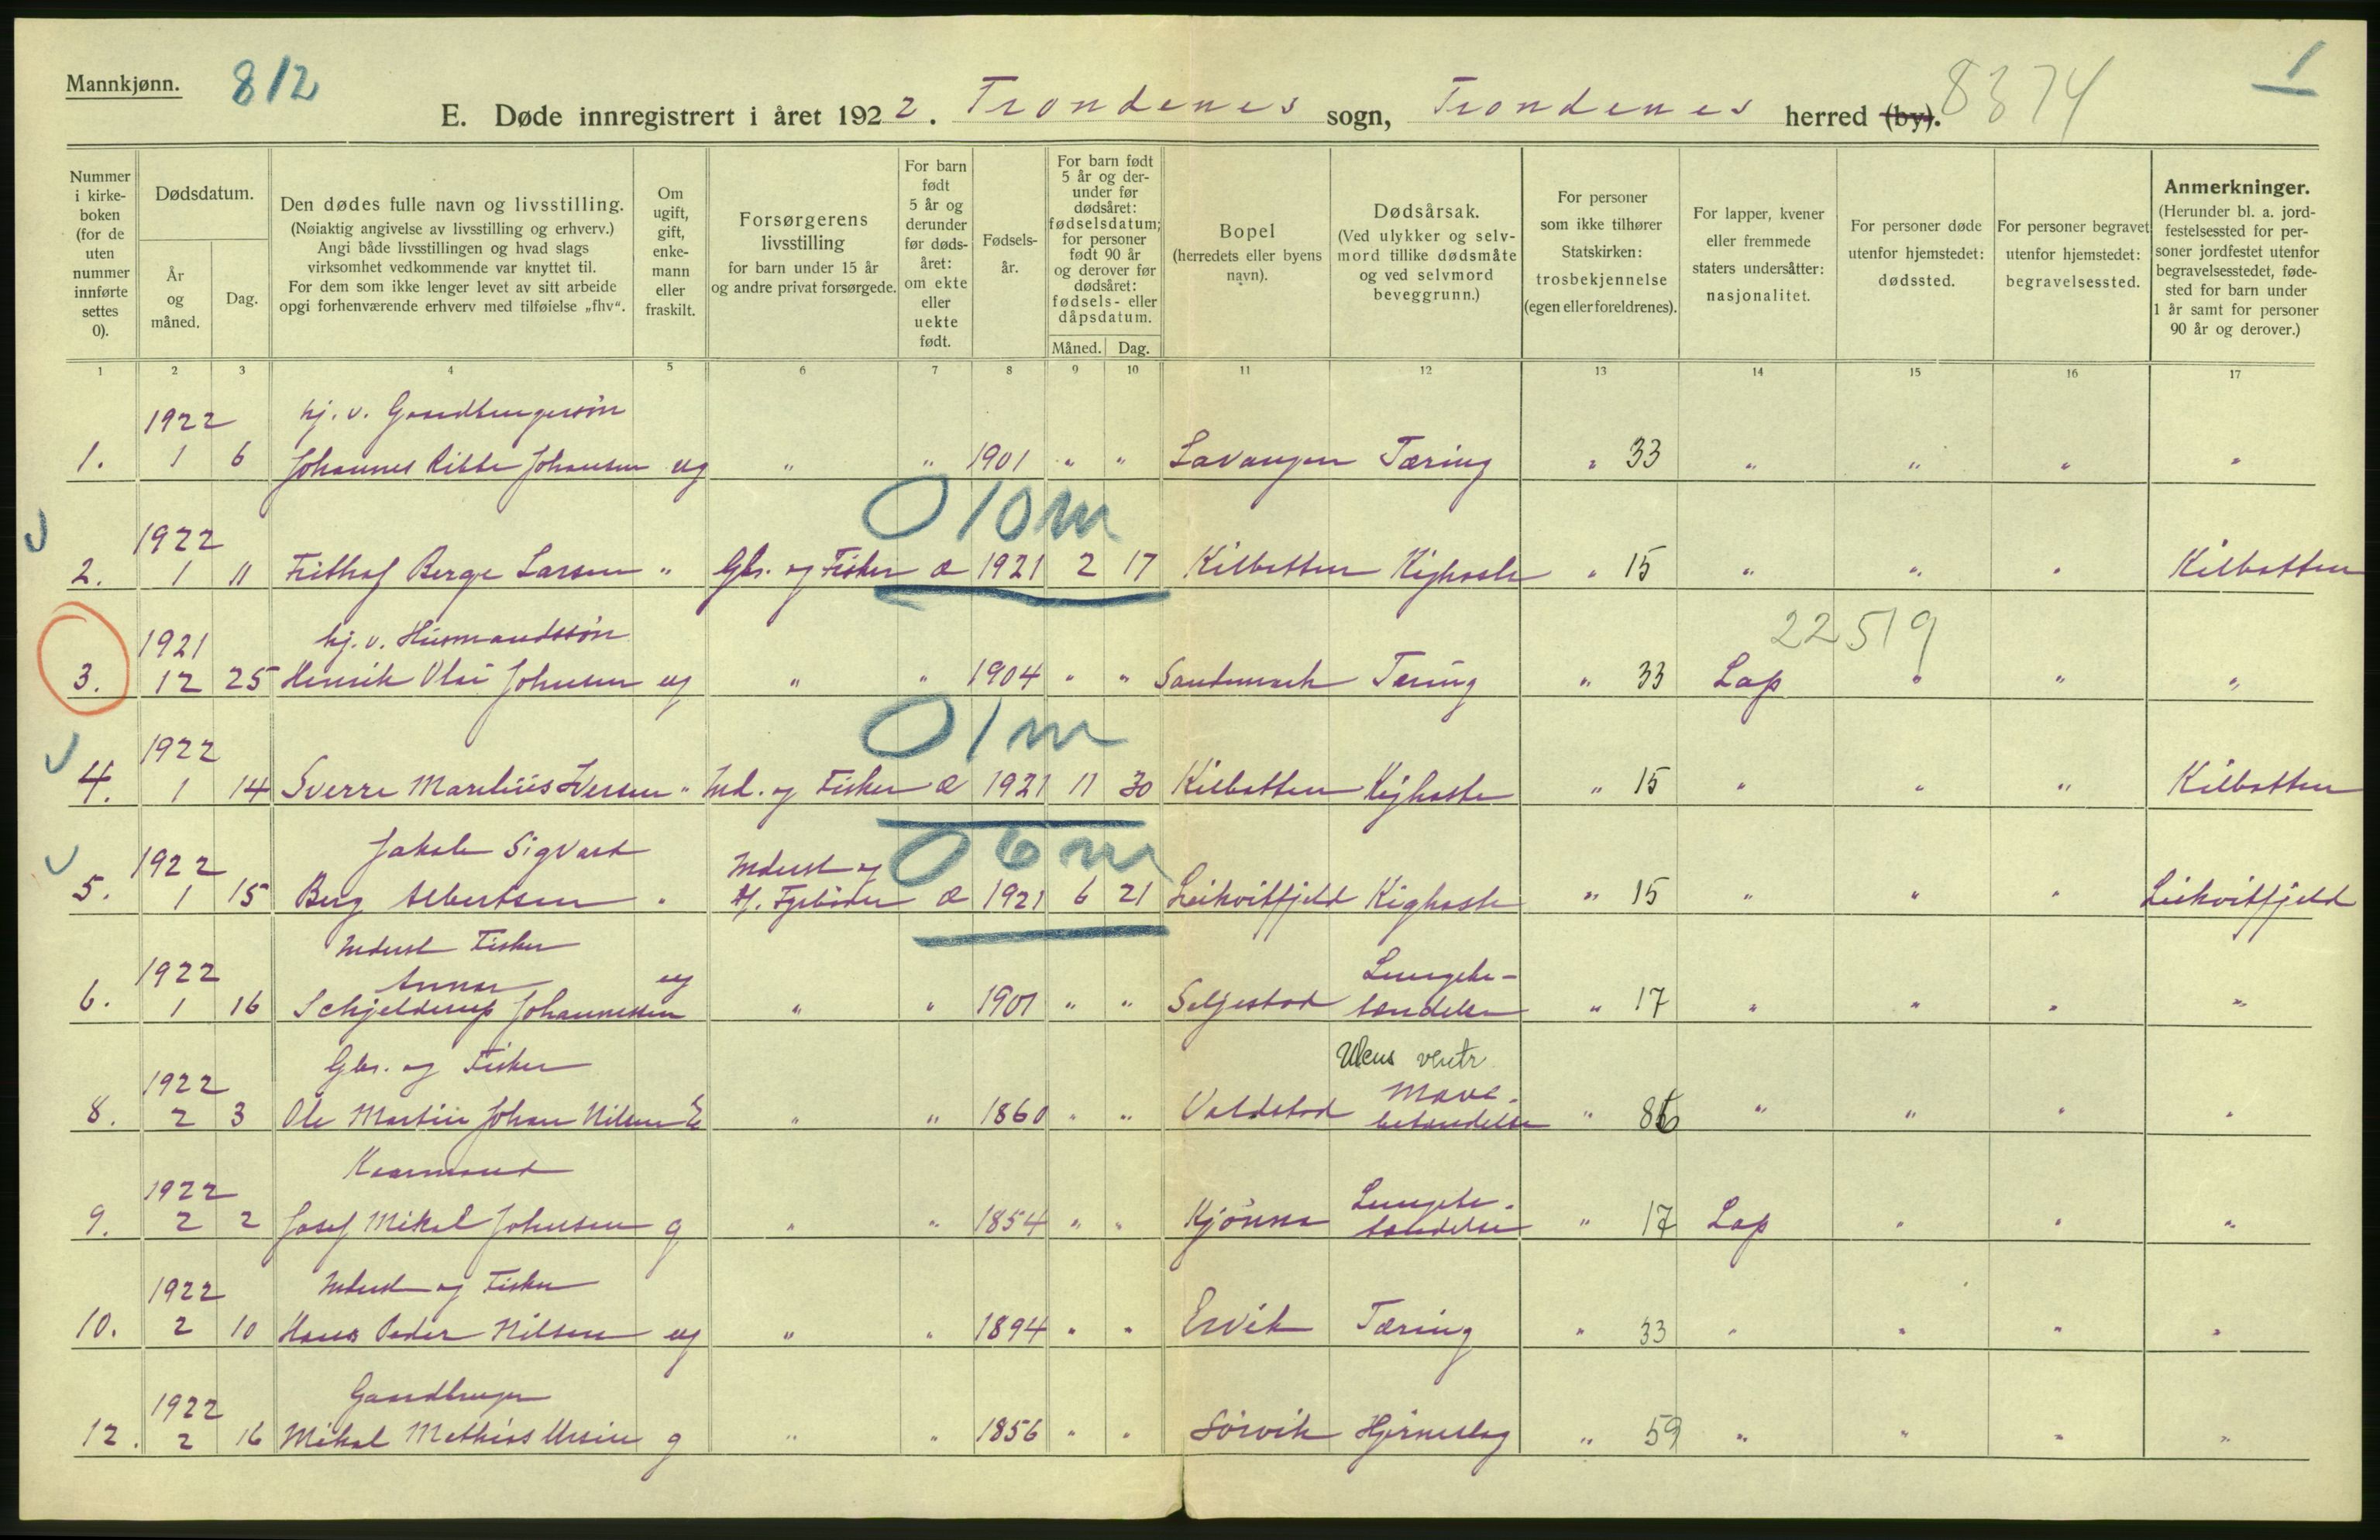 Mannkjønn.
812
E. Døde innregistrert i året 1922. Trondenes sogn, Trondenes herred (by).
8374
1
Nummer i kirke-boken (for de uten nummer innførte settes 0).
Dødsdatum.
År og måned.
Dag.
Den dødes fulle navn og livsstilling.
(Nøiaktig angivelse av livsstilling og erhverv.)
Angi både livsstillingen og hvad slags
virksomhet vedkommende var knyttet til.
For dem som ikke lenger levet av sitt arbeide
opgi forhenværende erhverv med tilføielse „fhv“.
Om ugift, gift, enke-mann eller fraskilt.
Forsørgerens livsstilling
for barn under 15 år
og andre privat forsørgede.
For barn født 5 år og derunder før døds-året: om ekte eller uekte født.
Fødsels-år.
For barn født 5 år og der-under før dødsåret: fødselsdatum; for personer født 90 år og derover før dødsåret: fødsels- eller dåpsdatum.
Måned. Dag.
Bopel
(herredets eller byens navn).
Dødsårsak.
(Ved ulykker og selv-mord tillike dødsmåte og ved selvmord beveggrunn.)
For personer som ikke tilhører Statskirken: trosbekjennelse (egen eller foreldrenes).
For lapper, kvener eller fremmede staters undersåtter: nasjonalitet.
For personer døde utenfor hjemstedet: dødssted.
For personer begravet utenfor hjemstedet: begravelsessted.
Anmerkninger.
(Herunder bl. a. jord-festelsessted for per-soner jordfestet utenfor begravelsesstedet, føde-sted for barn under 1 år samt for personer 90 år og derover.)
1 2 3 4 5 6 7 8 9 10 11 12 13 14 15 16 17
1922 hj. v. Gaardbrugersön
1. 1 6 Johannes Ribbe Johansen ug " " 1901 " " Lavangen Tæring " 33 " " " "
0 10 m
1922
2. 1 11 Frithof Berge Larsen " Gbr. og Fisker æ 1921 2 17 Kilbotten Kighoste " 15 " " " Kilbotten
22519
1921 hj. v. Husmandssön
3. 12 25 Henrik Olai Johnsen ug " " 1904 " " Sandmark Tæring " 33 Lap " " "
0 1 m
1922
4. 1 14 Sverre Marelius Iversen " Ind. og Fisker æ 1921 11 30 Kilbotten Kighoste " 15 " " " Kilbotten
0 6 m
1922 Jakob Sigvart Inderst og
5. 1 15 Berg Albertsen " Hj. Fyrböder æ 1921 6 21 Leikvitfjeld Kighoste " 15 " " " Leikvitfjeld
Inderst Fisker
1922 Annar ug Lungebe-
6. 1 16 Schjelderup Johannessen " " 1901 " " Seljestad tændelse " 17 " " " "
Ulcus ventr.
1922 Gbr. og Fisker Mave-
8. 2 3 Ole Martin Johan Nilsen E " " 1860 " " Voldstad betændelse " 86 " " " "
1922 Kaarmand Lungebe-
9. 2 2 Josef Mikal Johnsen g " " 1854 " " Kjönna tændelse " 17 Lap " " "
1922 Inderst og Fisker
10. 2 10 Hans Peder Nilsen ug " " 1894 " " Ervik Tæring " 33 " " " "
1922 Gaardbruger
12. 2 16 Mikal Mathias Ursin g " " 1856 " " Sörvik Hjerneslag " 59 " " " "